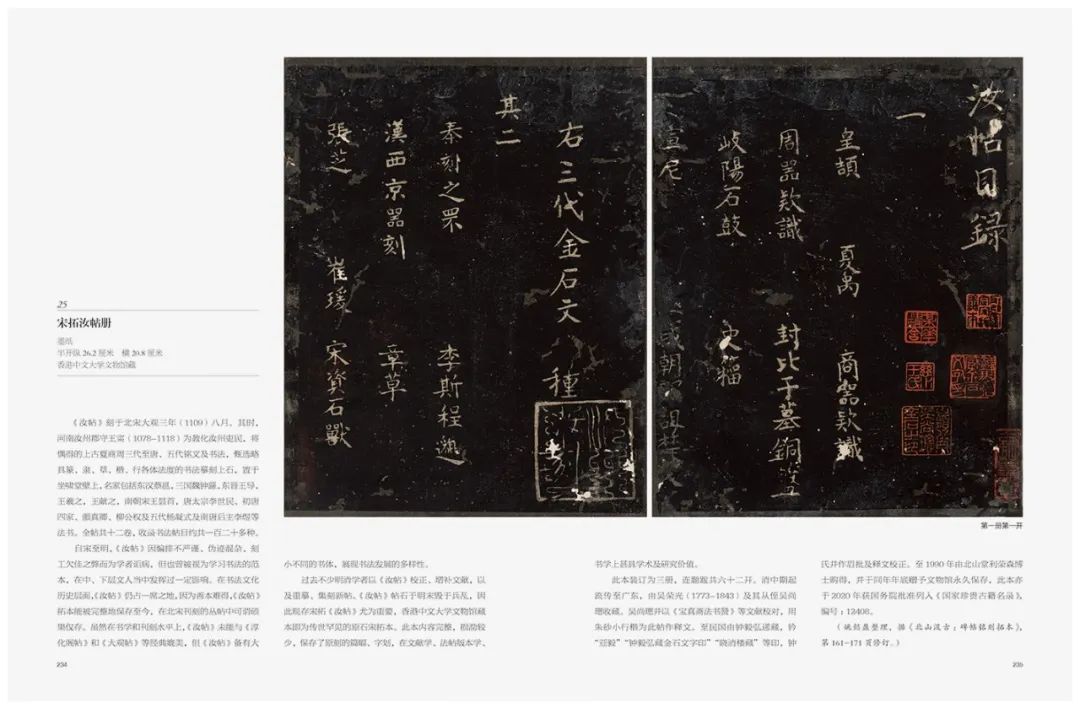 25
宋拓汝帖册
墨纸
半开纵 26.2 厘米 横 20.8 厘米
香港中文大学文物馆藏
《汝帖》刻于北宋大观三年（1109）八月。其时，
河南汝州郡守王寀（1078–1118）为教化汝州吏民，将
偶得的上古夏商周三代至唐、五代铭文及书法，甄选略
具篆、隶、草、楷、行各体法度的书法摹刻上石，置于
坐啸堂壁上，名家包括东汉蔡邕，三国魏钟繇，东晋王导、
王羲之、王献之，南朝宋王昙首，唐太宗李世民、初唐
四家、颜真卿、柳公权及五代杨凝式及南唐后主李煜等
法书。全帖共十二卷，收录书法帖目约共一百二十多种。
自宋至明，《汝帖》因编排不严谨、伪迹混杂、刻
工欠佳之弊而为学者诟病，但也曾被视为学习书法的范
本，在中、下层文人当中发挥过一定影响。在书法文化
历史层面，《汝帖》仍占一席之地，因为善本难得，《汝帖》
拓本能被完整地保存至今，在北宋刊刻的丛帖中可谓硕
果仅存。虽然在书学和刊刻水平上，《汝帖》未能与《淳
化阁帖》和《大观帖》等经典媲美，但《汝帖》备有大
小不同的书体，展现书法发展的多样性。
过去不少明清学者以《汝帖》校正、增补文献，以
及重摹、集刻新帖。《汝帖》帖石于明末毁于兵乱，因
此现存宋拓《汝帖》尤为重要，香港中文大学文物馆藏
本即为传世罕见的原石宋拓本。此本内容完整，损泐较
少，保存了原刻的篇幅、字划，在文献学、法帖版本学、
234
汝帖目錄
一
皇頡 夏禹 商器欵識
周器欵識 封比干墓銅
岐陽石鼓 史籀
宣尼
右三代金石文八種
其二
秦刻之罘 李斯程邈
漢西京器刻 章草
張芝 崔瑗 宋資石獸
第一册第一开
书学上甚具学术及研究价值。
此本装订为三册，连题跋共六十二开。清中期起
流传至广东，由吴荣光（1773–1843）及其从侄吴尚
璁收藏。吴尚璁并以《宝真斋法书赞》等文献校对，用
朱砂小行楷为此帖作释文。至民国由钟毅弘递藏，钤
“荭毅”“钟毅弘藏金石文字印”“晓清楼藏”等印，钟
氏并作眉批及释文校正。至 1990 年由北山堂利荣森博
士购得，并于同年年底赠予文物馆永久保存，此本亦
于 2020 年获国务院批准列入《国家珍贵古籍名录》，
编号：12408。
（姚馥盈整理，据《北山汲古：碑帖铭刻拓本》，
第 161–171 页修订。）
235